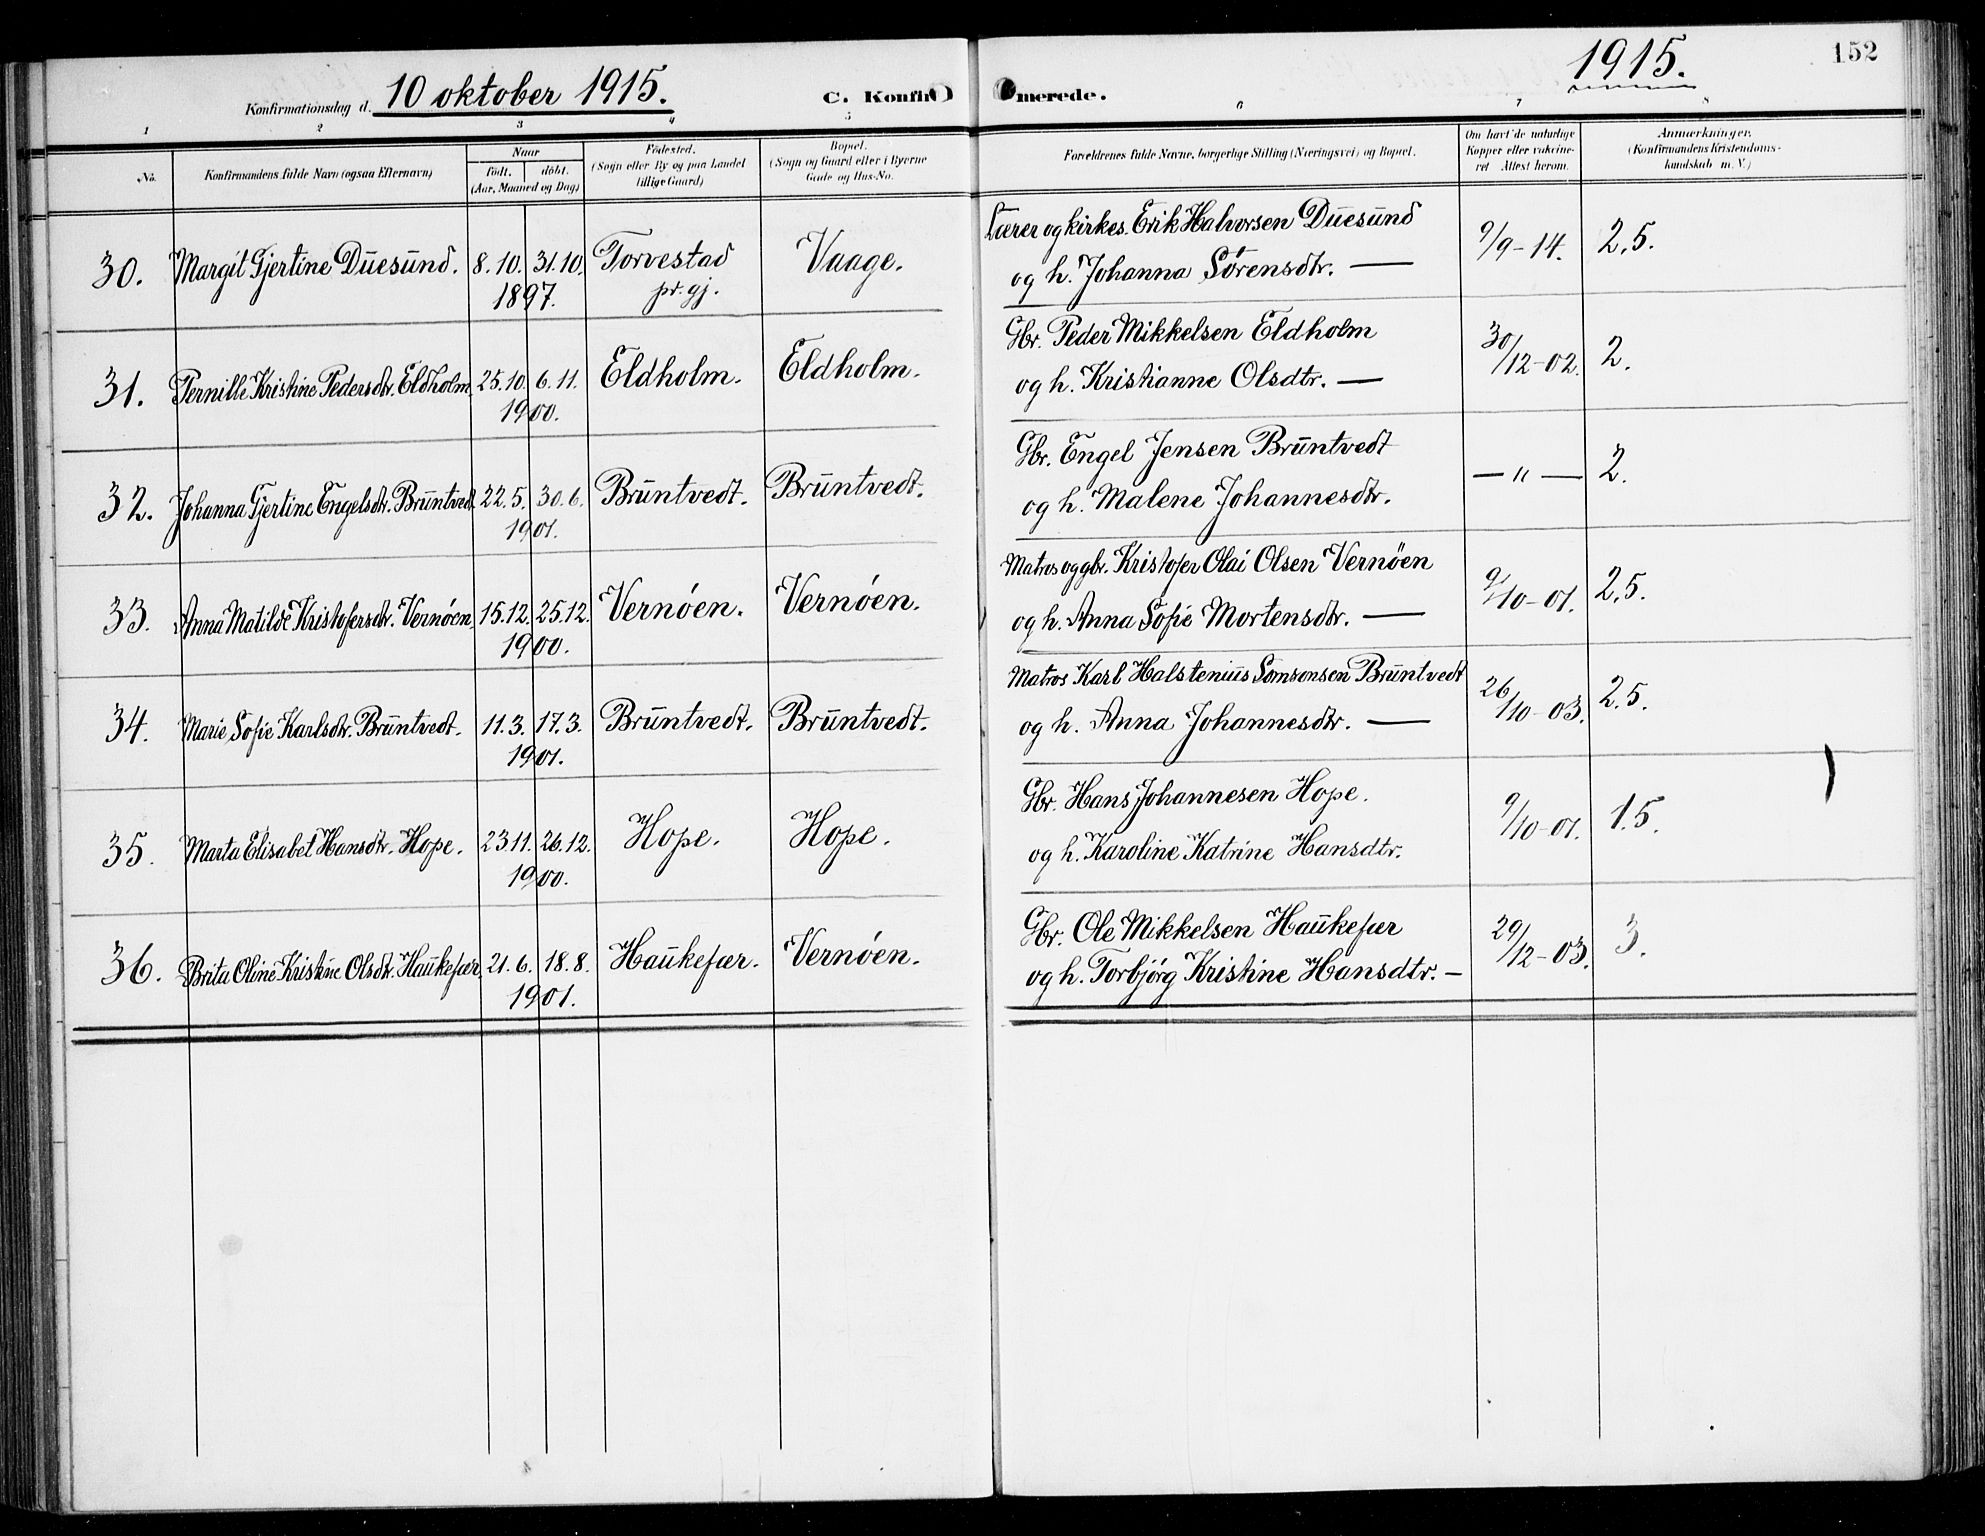 1915.
152
Konfirmationsdag d. 10 oktober 1915.
C. Konfir merede.
1 2 3 4 5 6 7 8
No.
Konfirmandens fulde Navn (ogsaa Efternavn)
Naar
født. døbt.
(Aar, Maaned og Dag)
Fødested.
(Sogn eller By og paa Landet
tillige Gaard)
Bopæl.
(Sogn og Gaard eller i Byerne
Gade og Hus-No.
Forældrenes fulde Navne, borgerlige Stilling (Næringsvei) og Bopæl.
Om havt de naturlige
Kopper eller vakcine-
ret Attest herom.
Anmærkninger.
(Konfirmandens Kristendoms-
kundskab m. V.)
30. Margit Gjertine Duesund. 8.10. 31.10. Torvestad Vaage.
1897. pr. gj.
Lærer og kirkes. Erik Halvorsen Duesund 9/9-14. 2,5.
og h. Johanna Sørensdtr. —
31. Pernille Kristine Pedersdtr. Eldholm. 25.10. 6.11. Eldholm. Eldholm.
1900.
Gbr. Peder Mikkelsen Eldholm 30/12-02. 2.
og h. Kristianne Olsdtr. —
32. Johanna Gjertine Engelsdtr. Bruntvedt. 22.5. 30.6. Bruntvedt. Bruntvedt.
1901.
Gbr. Engel Jensen Bruntvedt — " — 2.
og h. Malene Johannesdtr.
33. Anna Matilde Kristofersdtr. Vernøen. 15.12. 25.12. Vernøen. Vernøen.
1900.
Matros og gbr. Kristofer Olai Olsen Vernøen 9/10-01. 2,5.
og h. Anna Sofie Mortensdtr. —
34. Marie Sofie Karlsdtr. Bruntvedt. 11.3. 17.3. Bruntvedt. Bruntvedt.
1901.
Matros Karl Halstenius Samsonsen Bruntvedt 26/10-03. 2,5.
og h. Anna Johannesdtr. —
35. Marta Elisabet Hansdtr. Hope. 23.11. 26.12. Hope. Hope.
1900.
Gbr. Hans Johannesen Hope. 9/10-01. 1.5.
og h. Karoline Katrine Hansdtr.
36. Brita Oline Kristine Olsdtr. Haukefær. 21.6. 18.8. Haukefær. Vernøen.
1901.
Gbr. Ole Mikkelsen Haukefær 29/12-03. 3.
og h. Torbjørg Kristine Hansdtr. —